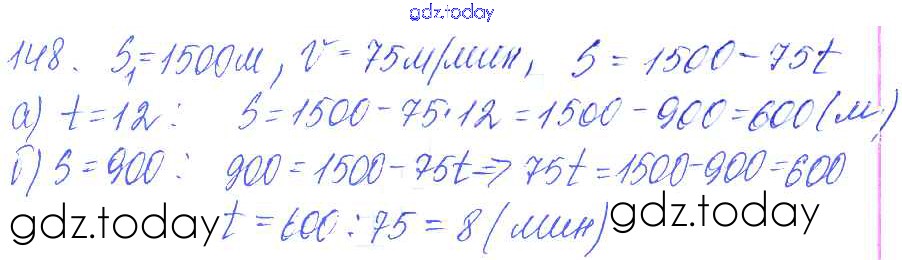 gdz.today
148. S₁=1500м, v=75м/мин, S=1500-75t
а) t=12: S=1500-75·12=1500-900=600(м)
б) S=900: 900=1500-75t=>75t=1500-900=600
gdz.today t=600:75=8(мин) gdz.today